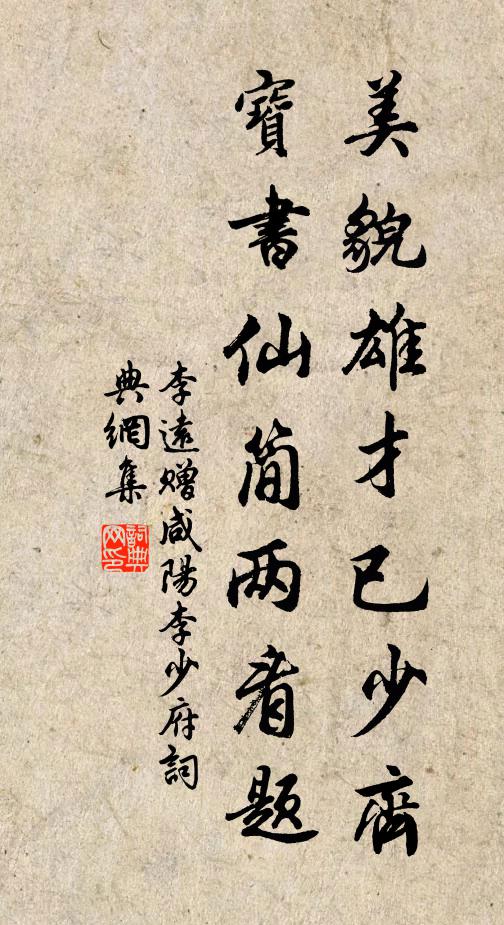 美貌雄才已少齊
寶書仙简两看題
李遠赠咸陽李少府詞
典網集
詞典
网印